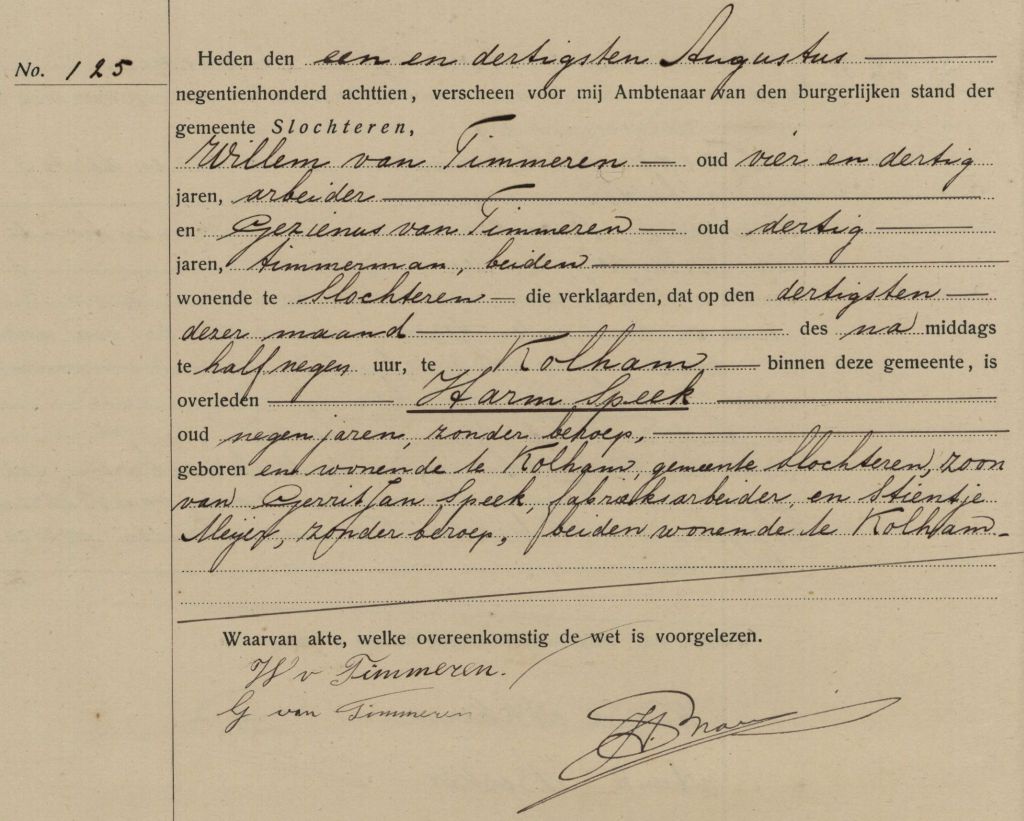 No. 125
Heden den een en dertigsten Augustus
negentienhonderd achttien, verscheen voor mij Ambtenaar van den burgerlijken stand der
gemeente Slochteren,
Willem van Timmeren — oud vier en dertig
jaren, arbeider
en Gezienus van Timmeren — oud dertig
jaren, timmerman, beiden
wonende te Slochteren — die verklaarden, dat op den dertigsten
dezer maand des na middags
te half negen uur, te Kolham — binnen deze gemeente, is
overleden Harm Speek
oud negen jaren, zonder beroep,
geboren en wonende te Kolham, gemeente Slochteren, zoon
van Gerrit Jan Speek, fabrieksarbeider, en Stientje
Meijer, zonder beroep, beiden wonende te Kolham.
Waarvan akte, welke overeenkomstig de wet is voorgelezen.
W v Timmeren.
G van Timmeren